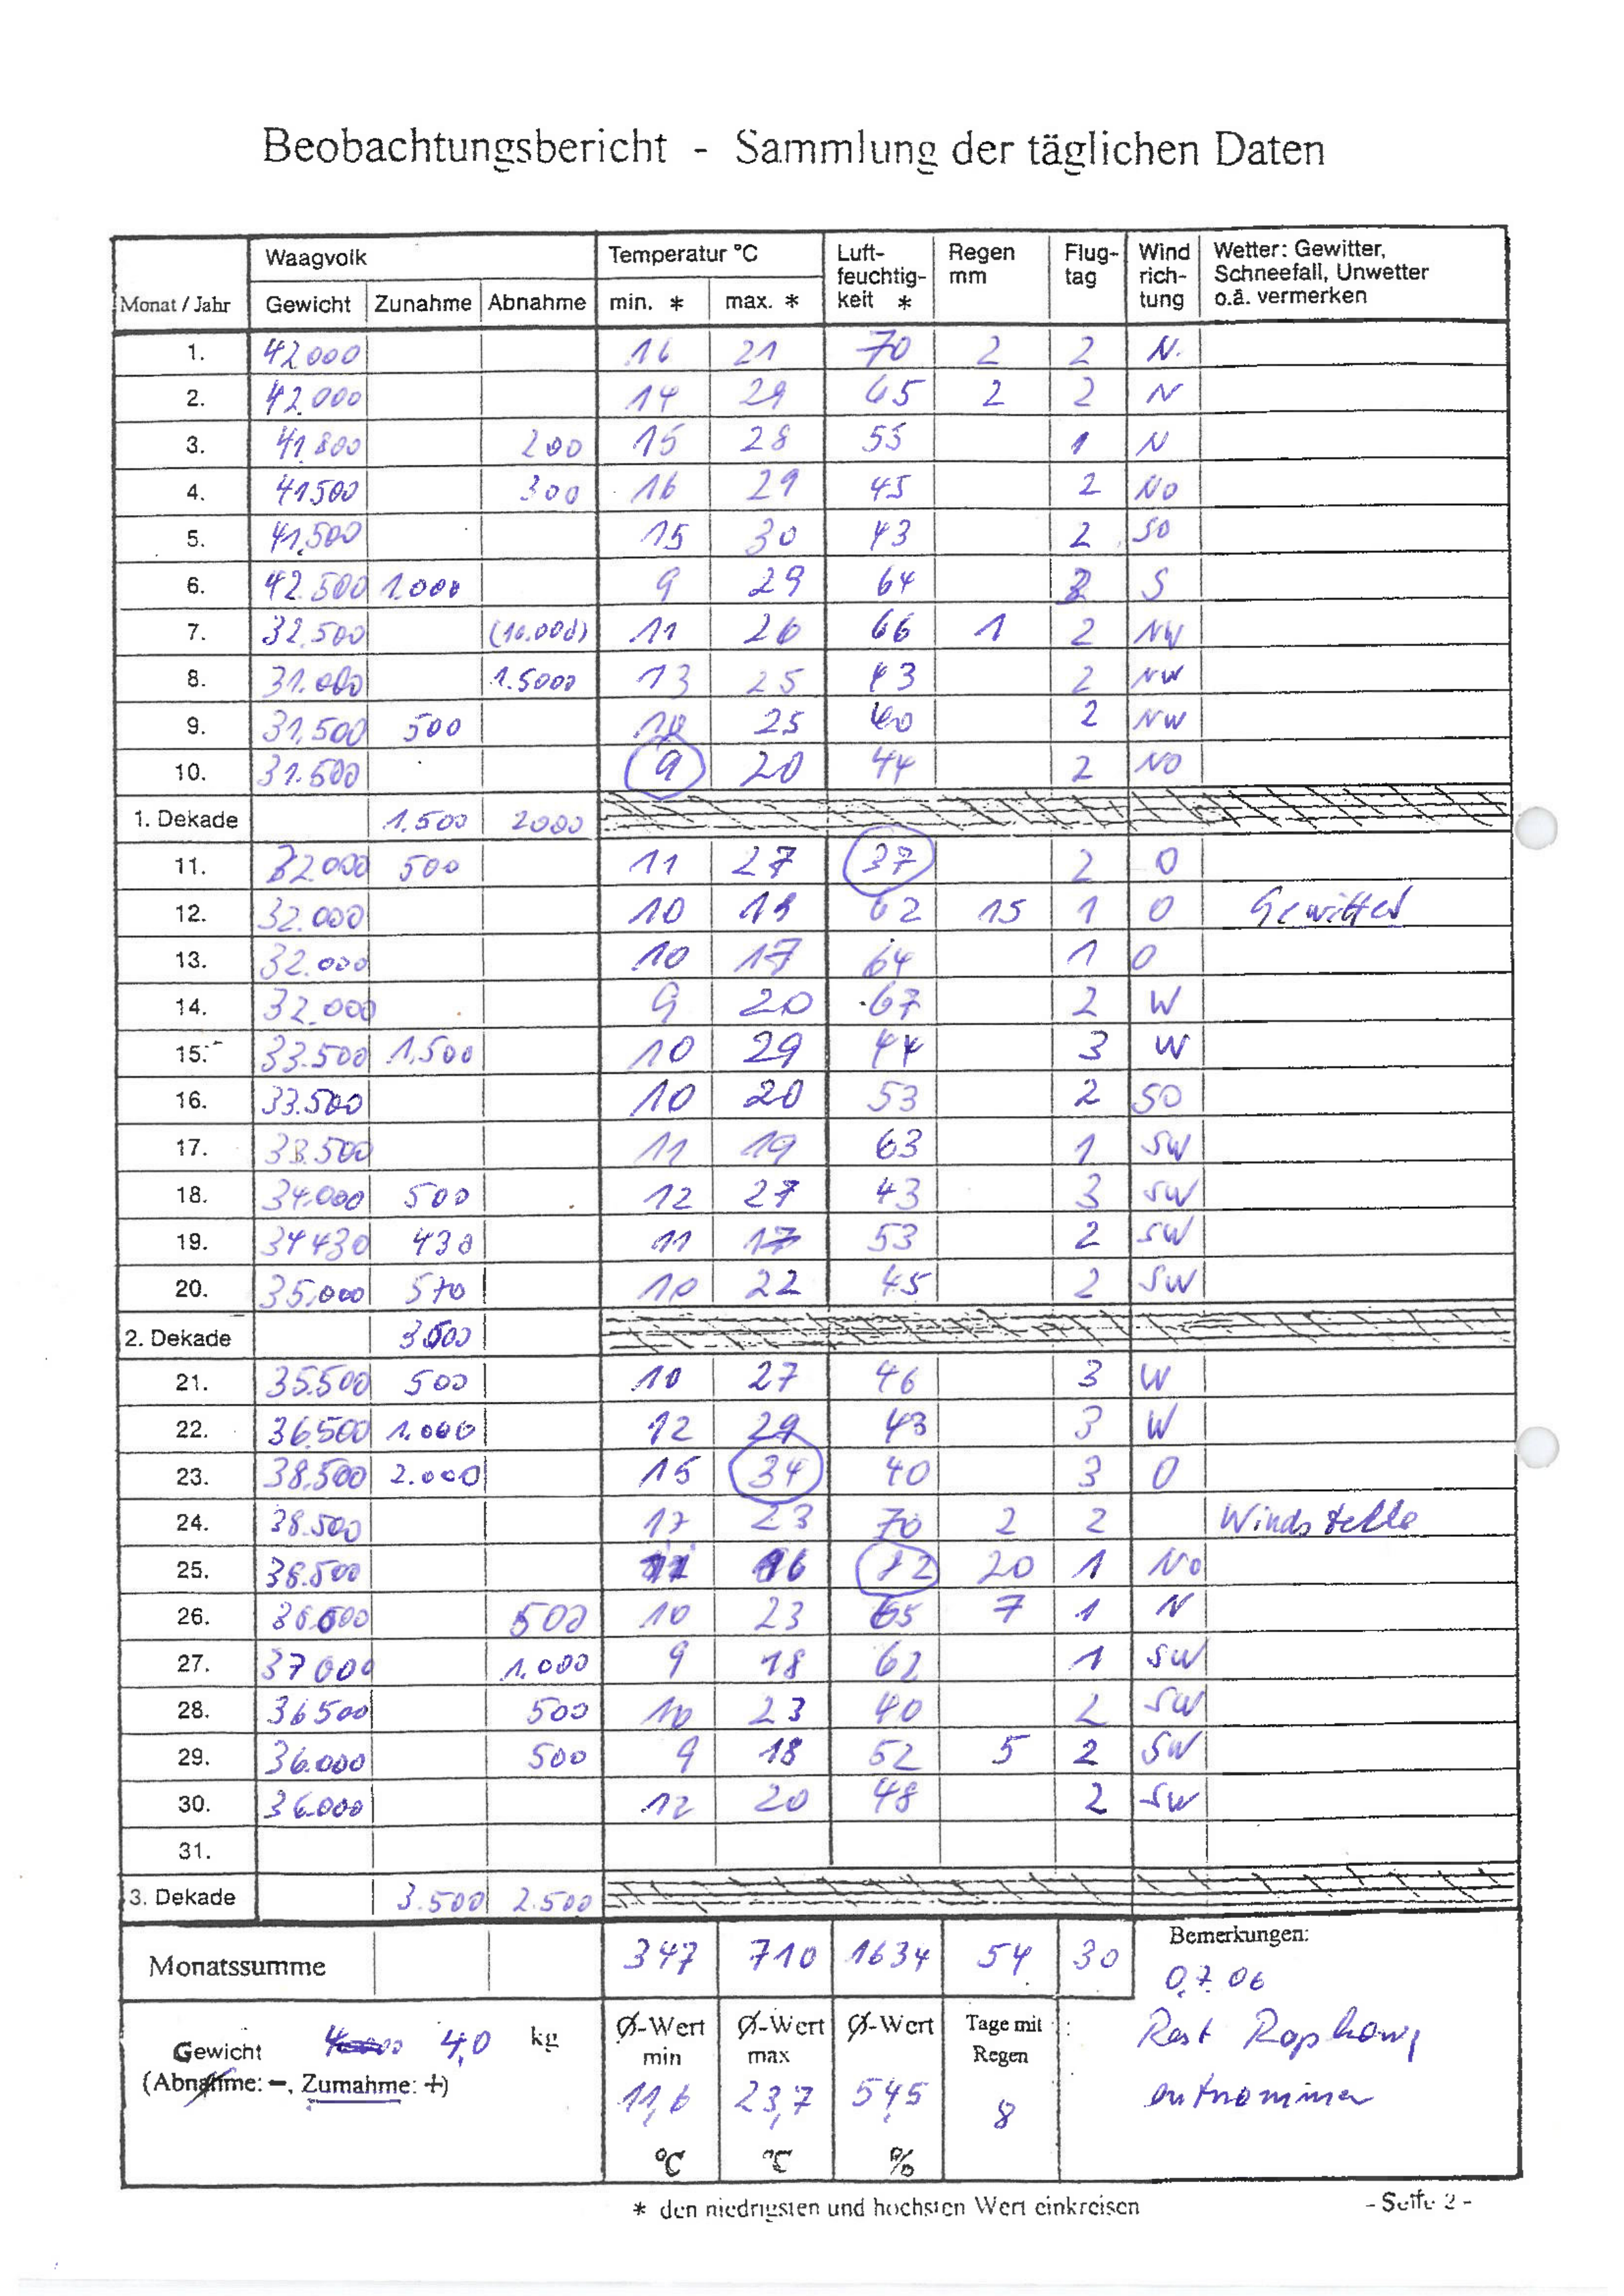 Beobachtungsbericht - Sammlung der täglichen Daten
Monat / Jahr Waagvolk Temperatur °C Luft-feuchtig-keit * Regen mm Flug-tag Wind rich-tung Wetter: Gewitter, Schneefall, Unwetter o.ä. vermerken
Gewicht Zunahme Abnahme min. * max. *
1. 42000 16 21 70 2 2 N.
2. 42.000 14 29 65 2 2 N
3. 41.800 200 15 28 55 1 N
4. 41500 300 16 29 45 2 NO
5. 41,500 15 30 43 2 SO
6. 42.500 1.000 9 29 64 S
7. 32.500 (10.000) 11 26 66 1 2 NW
8. 31.000 1.5000 13 25 43 2 NW
9. 31,500 500 25 40 2 NW
10. 31.500 9 20 44 2 NO
1. Dekade 1.500 2000
11. 32.000 500 11 27 37 2 O
12. 32.000 10 62 15 1 O Gewitter
13. 32.000 10 17 64 1 O
14. 32.000 9 20 67 2 W
15. 33.500 1.500 10 29 44 3 W
16. 33.500 10 20 53 2 SO
17. 33.500 11 19 63 1 SW
18. 34.000 500 12 27 43 3 SW
19. 34430 430 11 17 53 2 SW
20. 35,000 570 10 22 45 2 SW
2. Dekade 3.500
21. 35.500 500 10 27 46 3 W
22. 36.500 1.000 12 29 43 3 W
23. 38,500 2.000 15 34 40 3 O
24. 38.500 17 23 70 2 2 Windstelle
25. 38.500 11 16 20 1 NO
26. 500 10 23 65 7 1 N
27. 37000 1.000 9 18 62 1 SW
28. 36500 500 10 23 40 2 SW
29. 36.000 500 9 18 52 5 2 SW
30. 36.000 12 20 48 2 SW
31.
3. Dekade 3.500 2.500
Monatssumme 347 710 1634 54 30
Bemerkungen:
0.7.06
Rest Raphonig
entnommen
Gewicht 4,0 kg
(Abnahme: -, Zumahme: +)
Ø-Wert min Ø-Wert max Ø-Wert Tage mit Regen
11,6 23,7 54,5 8
°C °C %
* den niedrigsten und höchsten Wert einkreisen
- Seite 2 -